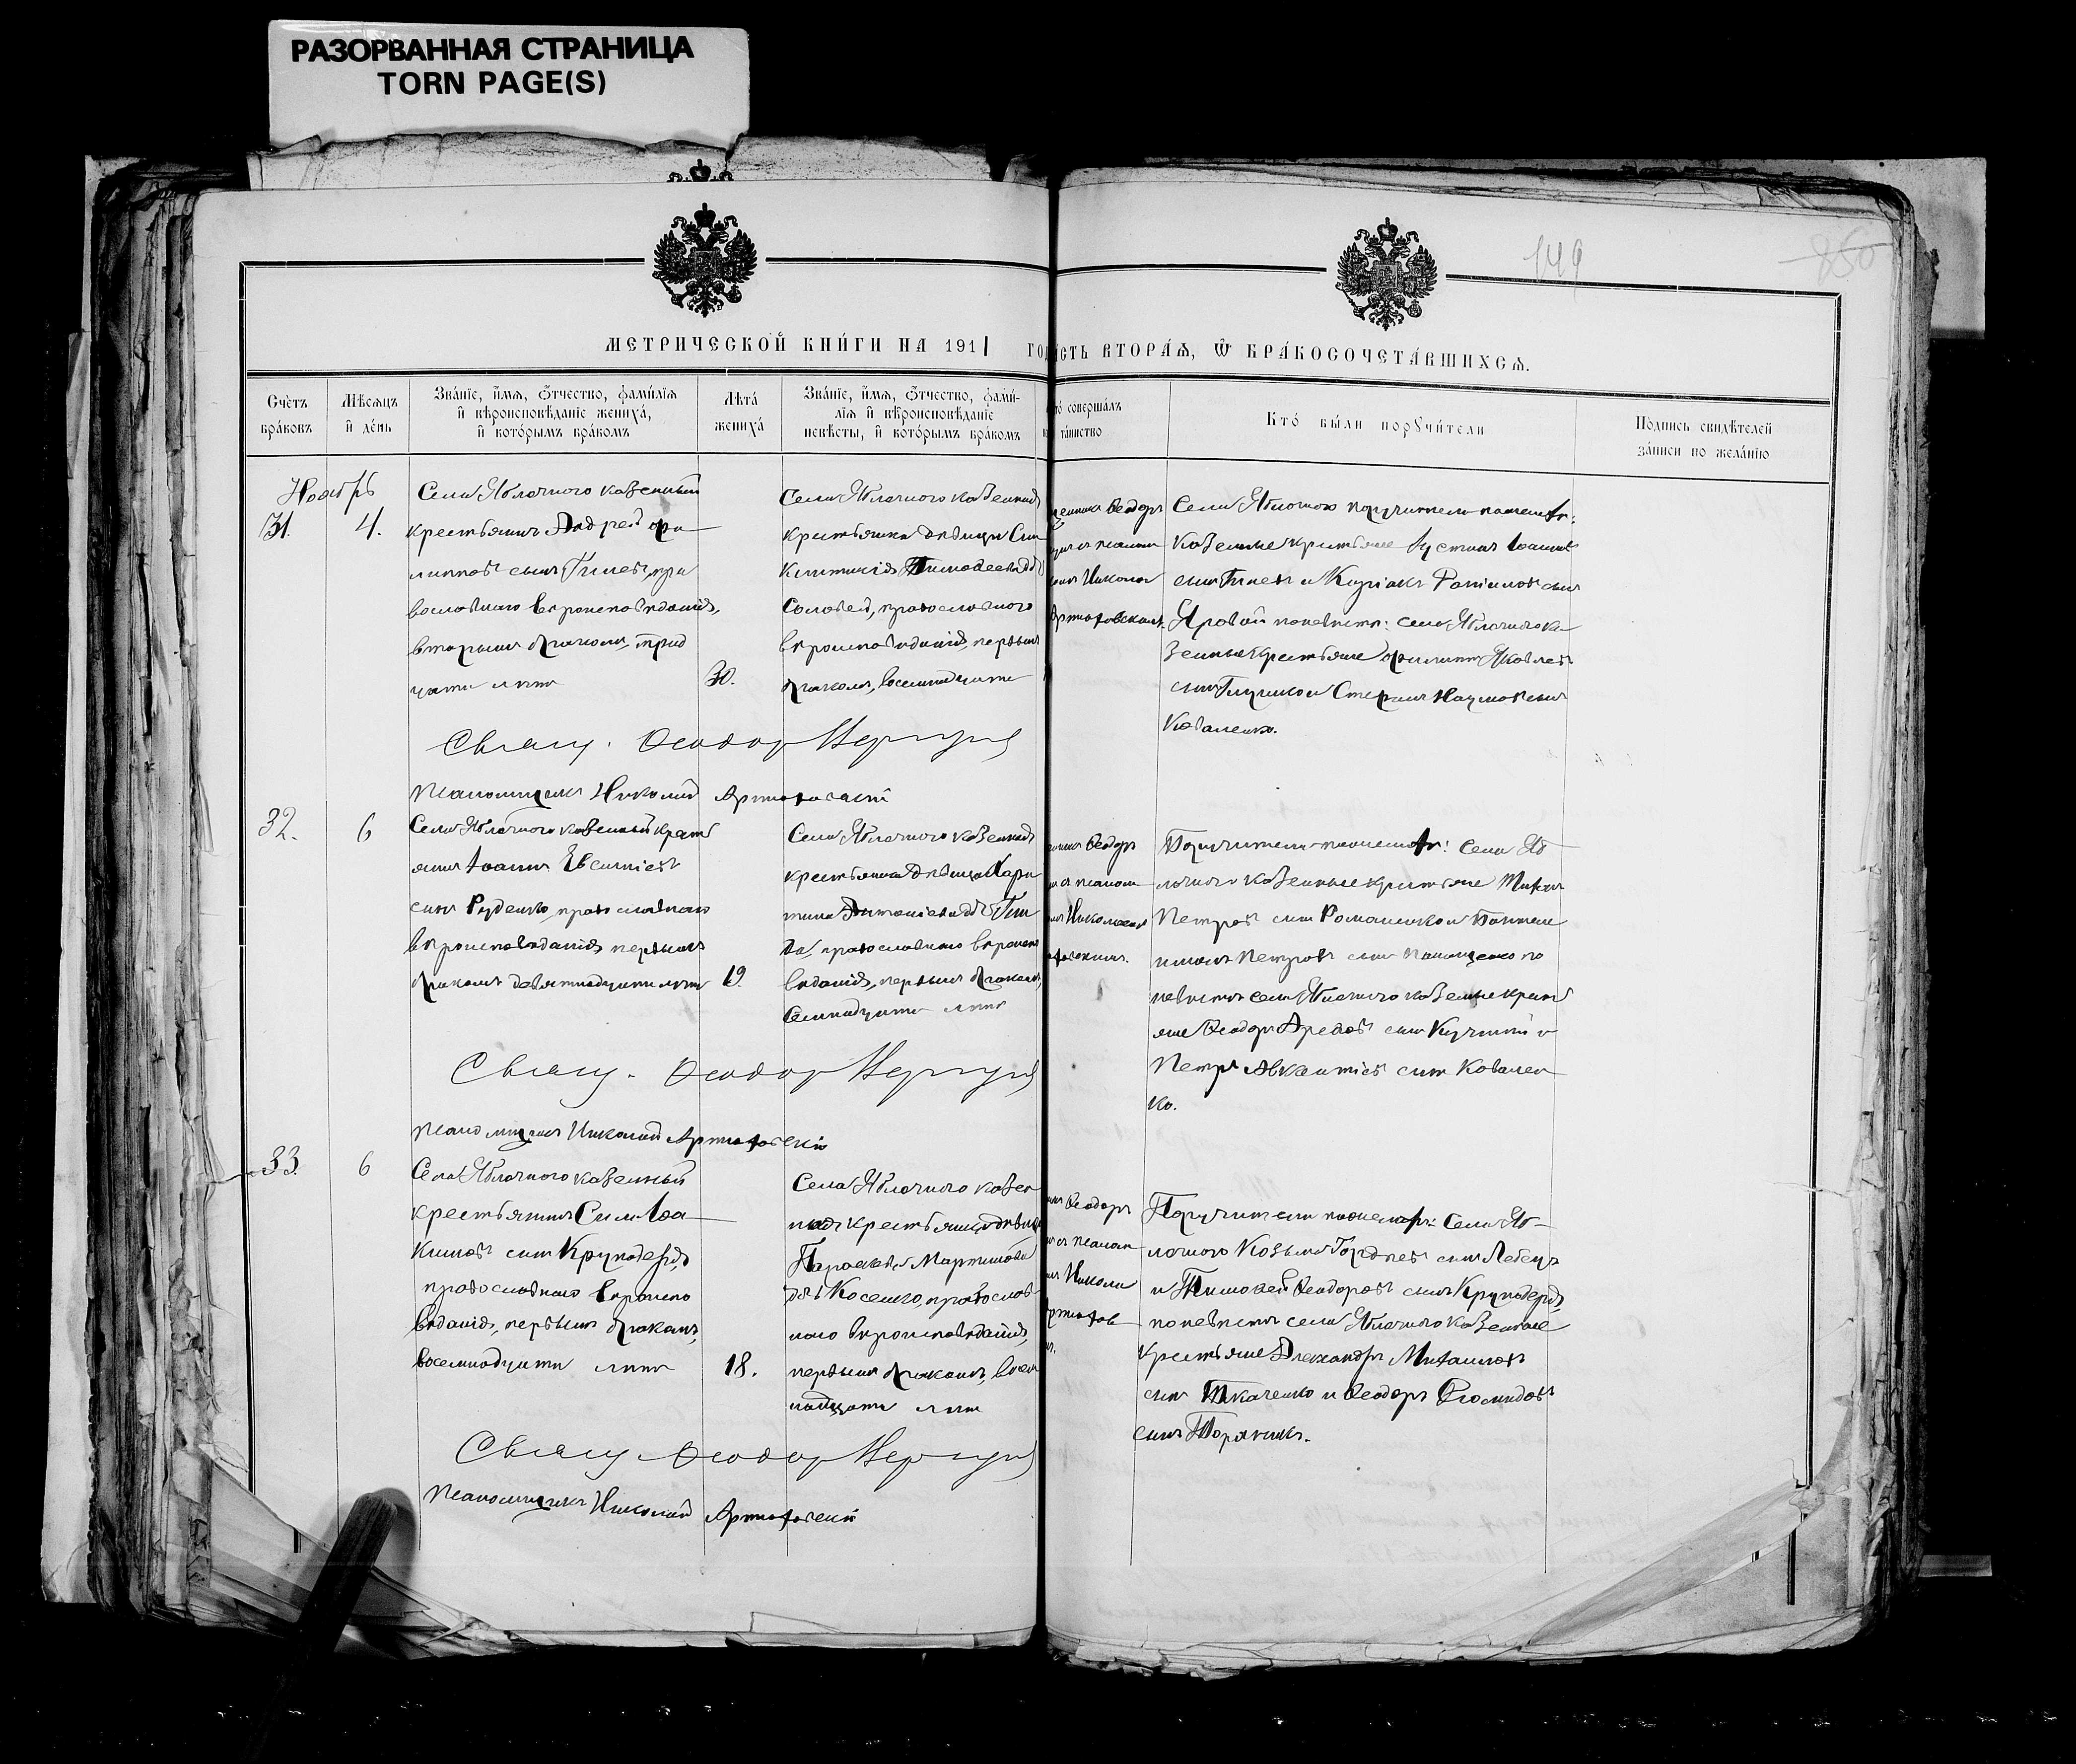 РАЗОРВАННАЯ СТРАНИЦА
TORN PAGE(S)
149
850
МЕТРИЧЕСКОЙ КНИ́ГИ НА 1911
ЧАСТЬ ВТОРА́Я, Ѿ БРА́КОСОЧЕТА́ВШИХСЯ.
Счетъ
бра́ковъ
Мѣсяцъ
и҆ де́нь
Зва́нїе, и҆́мя, ѻ҆́тчество, фами́лїя
и҆ вѣроисповѣ́данїе жениха́,
и҆ кото́рымъ бра́комъ
Лѣта́
жениха́
Зва́нїе, и҆́мя, ѻ҆́тчество, фами́-
лїя и҆ вѣроисповѣ́данїе
невѣсты, и҆ кото́рымъ бра́комъ
совершалъ
та́инство
Кто́ бы́ли порꙋчи́тели
Подпись свидѣтелей
за́писи по жела́нїю
Ноябрь
31.
4.
Села Яблочнаго казенный
крестьянинъ Андрей Фи
липповъ сынъ Гилевъ, пра
вославнаго вѣроисповѣданія,
вторымъ бракомъ, трид
цати лѣтъ
30.
Села Яблочнаго казенная
крестьянка дѣвица Син
клитикія Тимофеева дочь
Соловей, православнаго
вѣроисповѣданія, первымъ
бракомъ, восемнадцати
Феодоръ
Николай
Артюховскимъ.
Села Яблочного поручители по женихѣ:
казенные крестьяне Іустинъ Іоанновъ
сынъ Гилевъ и
сынъ
Яровой по невѣстѣ: села Яблочного ка
зенные крестьяне Филиппъ Яковлевъ
сынъ Глушко и Стефанъ Наумовъ сынъ
Коваленко.
Священ. Феодоръ
Псаломщикъ Николай Артюховскій
32.
6
Села Яблочного казенный кресть
янинъ Іоаннъ Евсигніевъ
сынъ Руденко, православнаго
вѣроисповѣданія, первымъ
бракомъ девятнадцати лѣтъ
19.
Села Яблочного казенная
крестьянка дѣвица Хари
тина Антоніева дочь
православнаго вѣроиспо
вѣданія, первымъ бракомъ,
семнадцати лѣтъ
Феодоръ
Николаемъ
Поручители по женихѣ: села Яб
лочного казенные крестьяне
Петровъ сынъ Романенко и Пантеле
имонъ Петровъ сынъ Панащенко по
невѣстѣ села Яблочного казенные кресть
яне Феодоръ сынъ Кучмій и
Петръ Авксентіевъ сынъ Ковален
ко.
Священ. Феодоръ
Псаломщикъ Николай Артюховскій
33.
6
Села Яблочного казенный
крестьянинъ Симъ Іоа
кимовъ сынъ Круподеря,
православнаго вѣроиспо
вѣданія, первымъ бракомъ,
восемнадцати лѣтъ
18.
Села Яблочного казен
ная крестьянка дѣвица
Параскева Мартинова
дочь Косенко, православ
наго вѣроисповѣданія,
первымъ бракомъ, восем
надцати лѣтъ
Феодоръ
Николай
Артюхов
Поручители по женихѣ: села Яб
лочного Козьма Гордѣевъ сынъ Лебедь
и Тимофей Феодоровъ сынъ Круподеря,
по невѣстѣ села Яблочного казенные
крестьяне Александръ Михаиловъ
сынъ Ткаченко и Феодоръ
сынъ Торяникъ.
Священ. Феодоръ
Псаломщикъ Николай Артюховскій